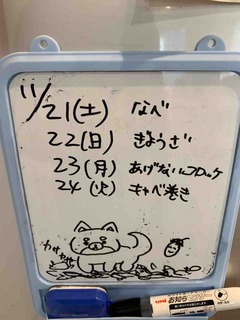 11/21(土) なべ
22(日) ぎょうざ
23(月) あげないコロッケ
24(火) キャベ巻き
わさわさ
uni お知らせ